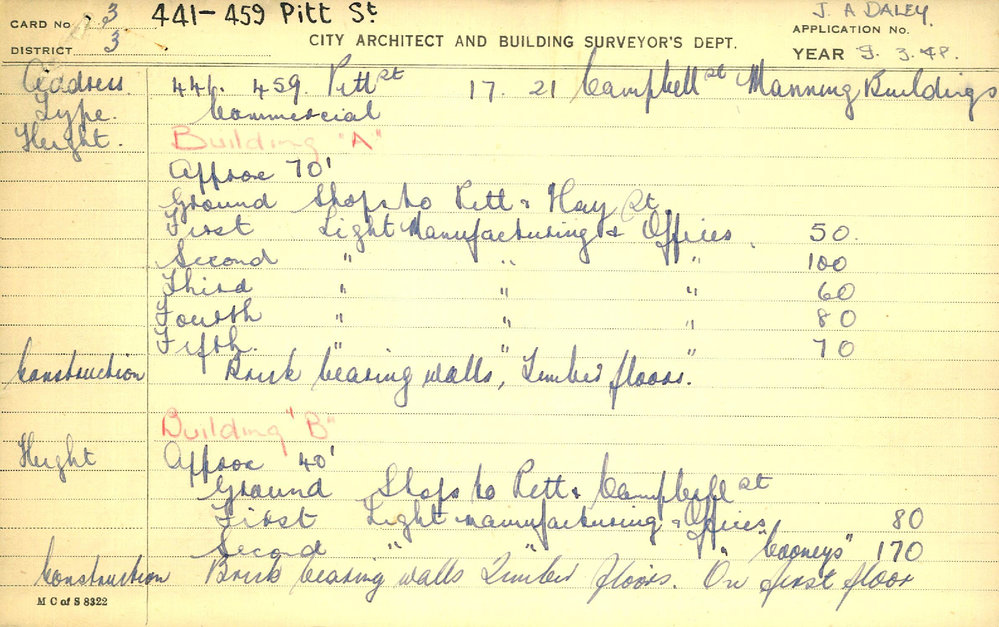 CARD No. 3 441-459 Pitt St J. A DALEY.
APPLICATION No.
DISTRICT 3 CITY ARCHITECT AND BUILDING SURVEYOR'S DEPT. YEAR 9. 3. 48.
Address 441. 459 Pitt St 17. 21 Campbell St Manning Buildings
Type. Commercial
Height. Building "A"
Approx 70'
Ground Shops to Pitt & Hay St
First Light Manufacturing & Offices. 50.
Second " " " 100
Third " " " 60
Fourth " " " 80
Fifth. " " " 70
Construction Brick bearing walls, Timber floors.
Building "B"
Height Approx 40'
Ground Shops to Pitt & Campbell St
First Light manufacturing & Offices 80
Second " " " "Cooneys" 170
Construction Brick bearing walls Timber floors. On first floor
M C of S 8322